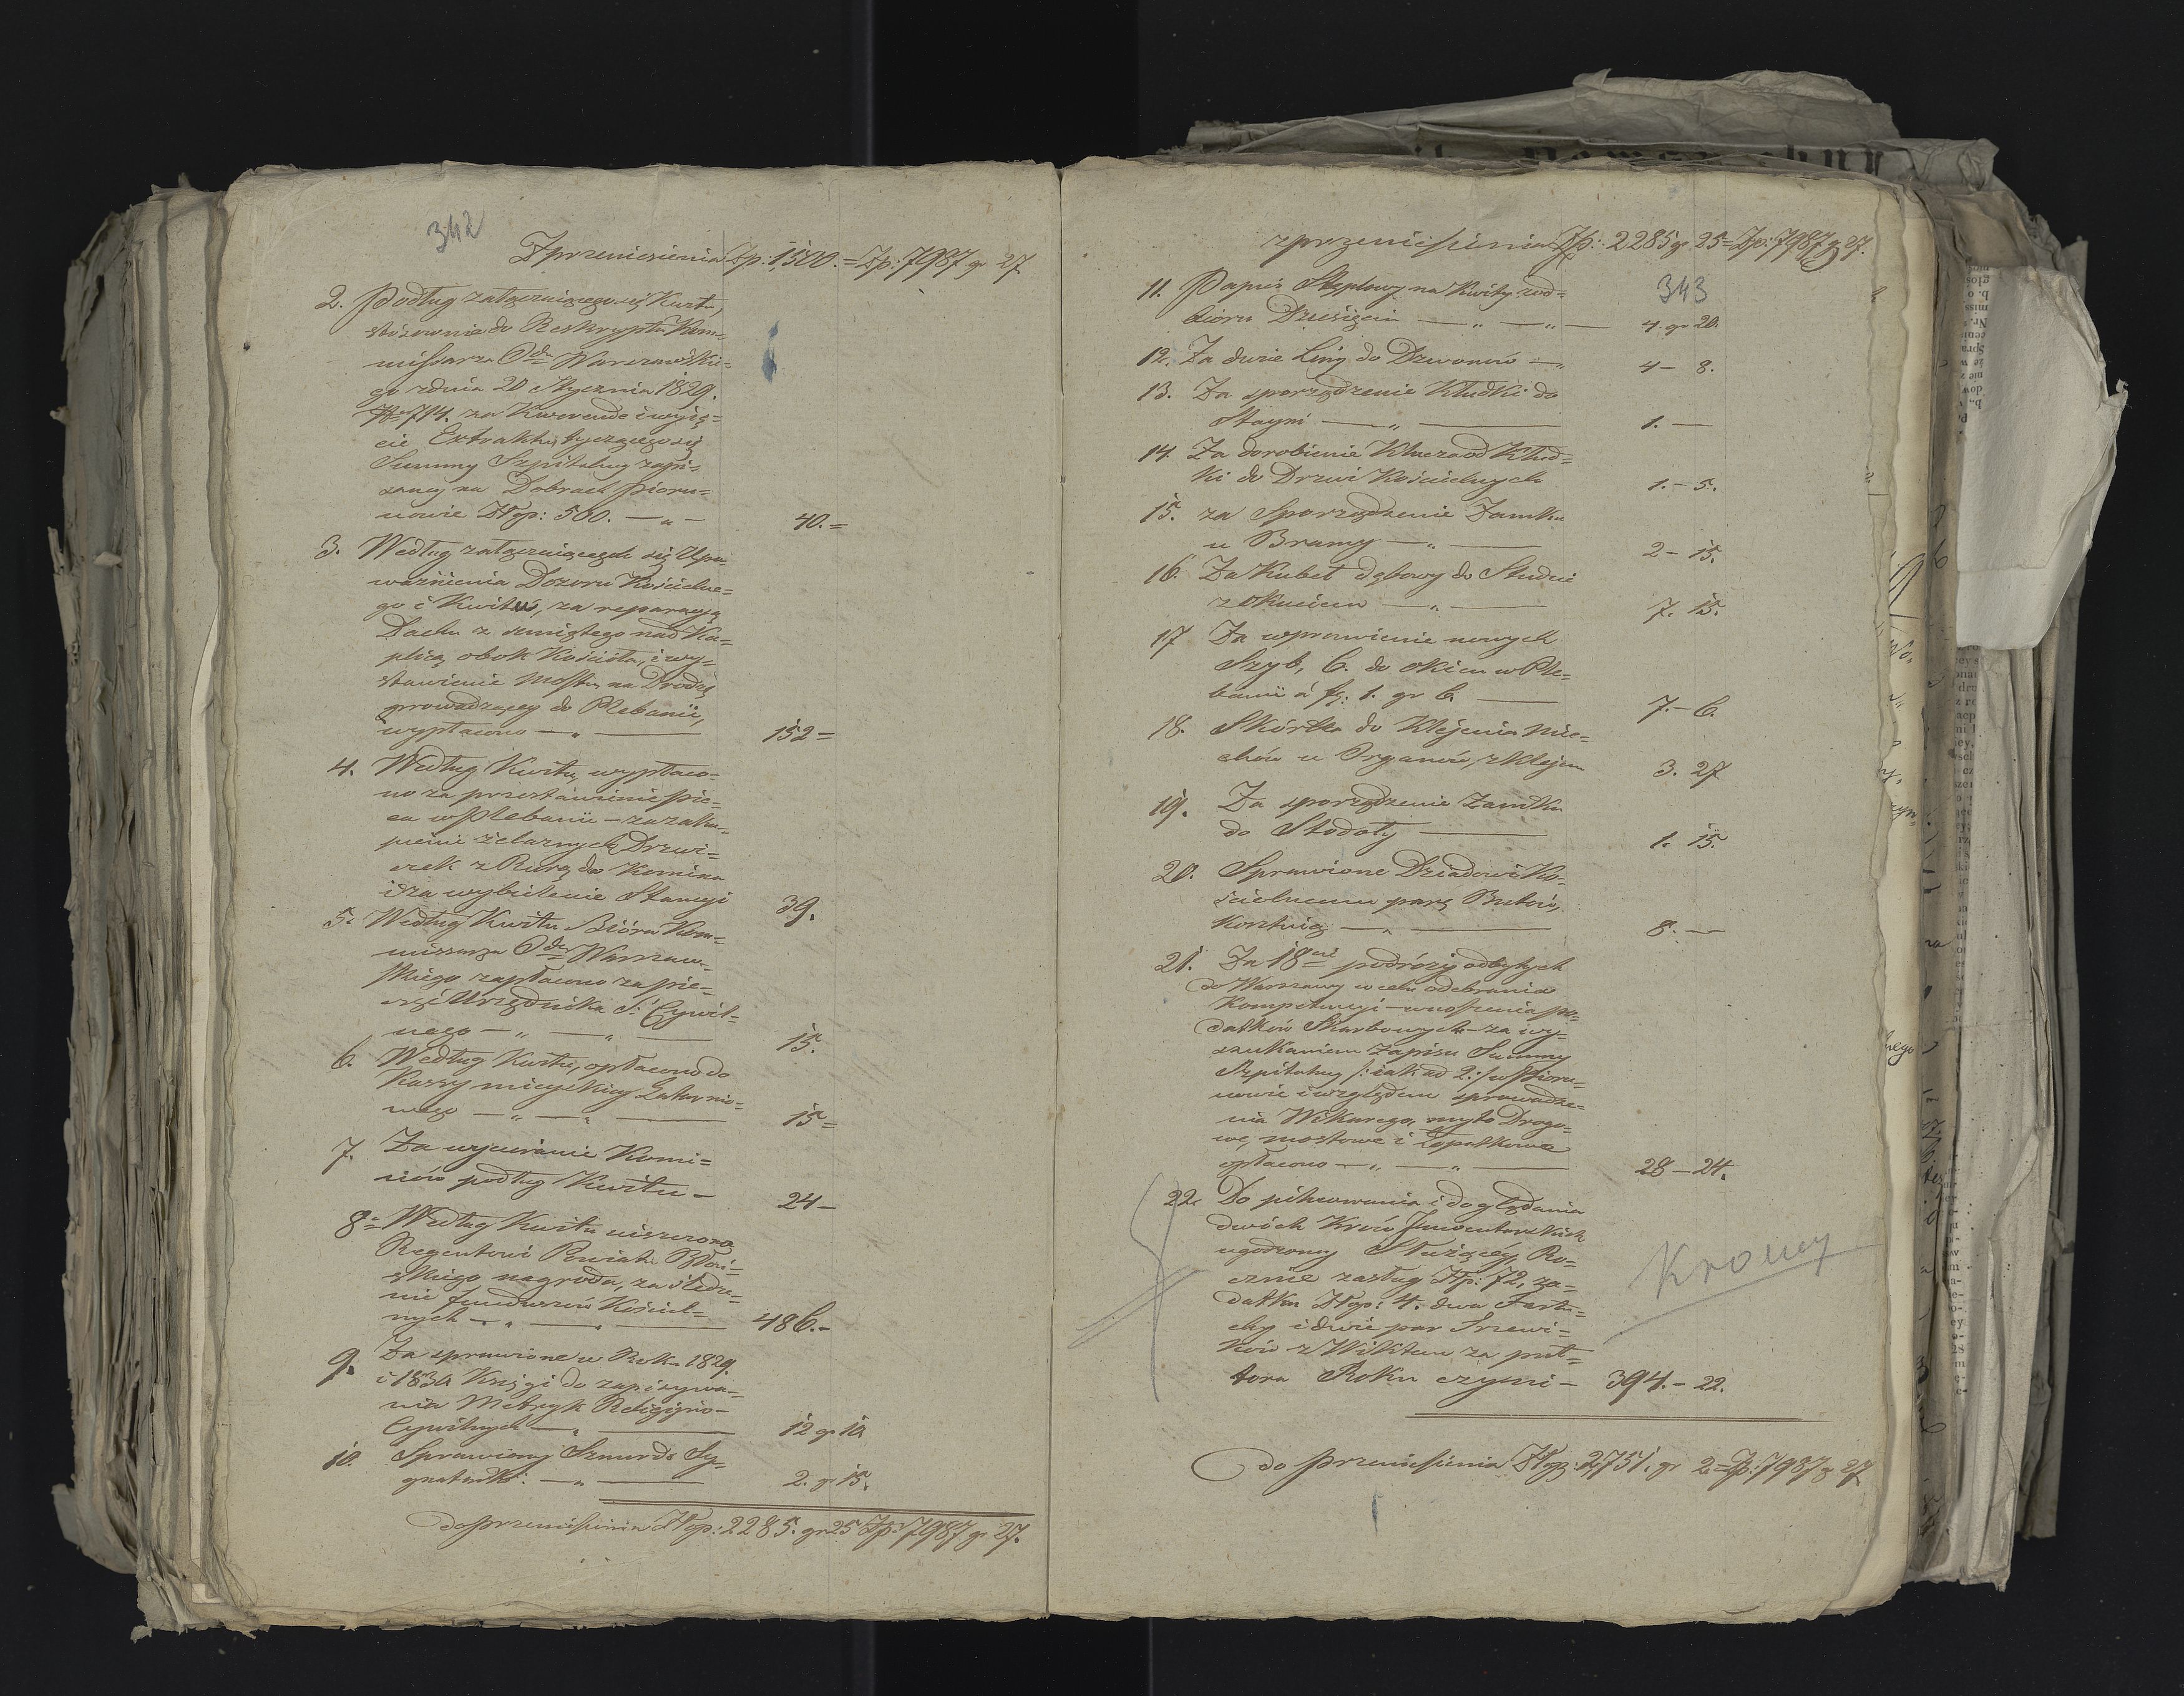 342
Z przeniesienia Zp. 1,500.= Zp: 7987 gr 27
2. Podług załączaiącego się Kwitu,
stósownie do Reskryptu Kom=
missarza Odu Warszawskie=
go z dnia 20 Stycznia 1829.
No 714. za Kwerendę i wyię=
cie Extraktu, tyczącego się
Summy Szpitalney zapi=
saney na Dobrach Pioru=
nowie Złp: 500. — „ — 40.=
3. Według załączaiących się Upo
ważnienia Dozoru Kościelne=
go i Kwitów, za reparacyą
Dachu z zmiętego nad Ka=
plicą obok Kościoła, i wy=
stawienie Mostu na Drodze
prowadzącey do Plebanii,
wypłacono — „ — 152=
4. Według Kwitu wypłaco=
no za przestawienie pie=
ca w Plebanii — za zaku=
pienie żelaznych Drzwi=
czek z Rurą do Komina
i za wybielenie Stancyi 39.
5. Według Kwitu Bióra Kom=
missarza Odu Warszaw=
skiego zapłacono za pie=
częć Urzędnika S: Cywil=
nego — „ — „ — 15.
6. Według Kwitu, opłacono do
Kassy mieyskiey Latarnio=
wego — „ — „ — 15=
7. Za wycieranie Komi=
nów podług Kwitu — 24—
8= Według Kwitu uiszczona
Regentowi Powiatu Błoń=
skiego nagroda, za śledze=
nie funduszów Kościel=
nych — „ — „ — 486.—
9. Za sprawione w Roku 1829.
i 1830. Księgi do zapisywa=
nia Metryk Religiyno—
Cywilnych — „ — 12 gr 10
10. Sprawiony Sznur do Sy=
gnaturki: — „ — 2. gr 15.
do przeniesienia Złop: 2285. gr 25 Zp: 7987 gr 27.
z przeniesienia Zp: 2285 gr 25= Zp: 7987 gr 27.
343
11. Papier Stęplowy na Kwity z od=
bioru Dziesięcin — „ — „ — 4. gr 20.
12. Za dwie Liny do Dzwonów — „ 4— 8.
13. Za sporządzenie Kłudki do
Stayni — „ — 1. —
14. Za dorobienie Klucza od Kłud=
ki do Drzwi Kościelnych 1.— 5.
15. za Sporządzenie Zamku
u Bramy — „ — 2— 15.
16. Za Kubeł dębowy do Studni
z okuciem — „ — 7. 15.
17 Za wprawienie nowych
Szyb, 6. do okien w Ple=
banii á fz: 1. gr 6. — 7.— 6.
18. Skórka do Klejenia Mie=
chów u Organów, z Klejem 3. 27
19. Za sporządzenie Zamku
do Stodoły — 1. 15.
20. Sprawione Dziadowi Ko=
ścielnemu parę Butów,
kosztuią — „ — 8.—
21. Za 18cie podróży odbytych
do Warszawy w celu odebrania
Kompetencyi — wnoszenia po=
datków Skarbowych — za wy=
szukaniem zapisu Summy
Szpitalney /: iak ad 2:/ w Pioru=
nowie i względem sprowadze=
nia Wikarego, myto Drogo=
we, mostowe i kopytkowe
opłacono — „ — „ — 28— 24.
22. Do pilnowania i doglądania
dwóch Krów Inwentarskich
ugodzoney Służącéy, Ro=
cznie zasług Złp: 72, za=
datku Złop: 4. dwa Fartu=
chy i dwie par Trzewi=
ków z Wiktem za puł=
tora Roku czyni — 394.— 22.
Krowy
do przeniesienia Złop: 2,751. gr 2.= Zp: 7987 gr 27